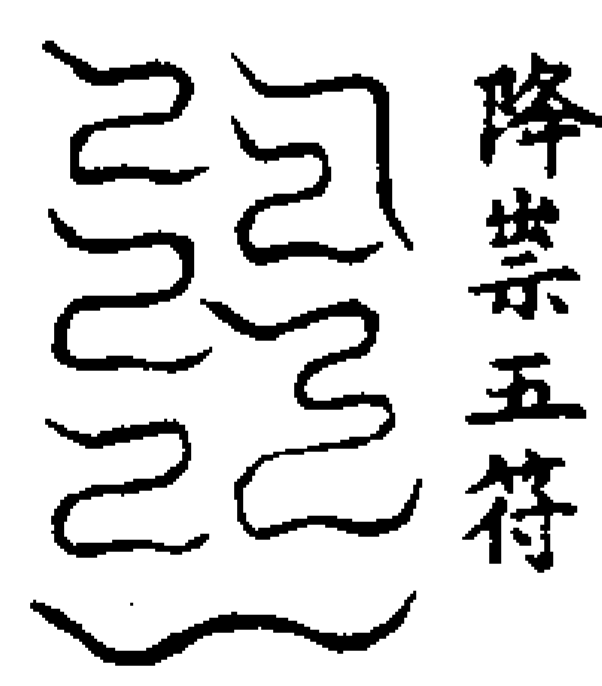 降祟五符